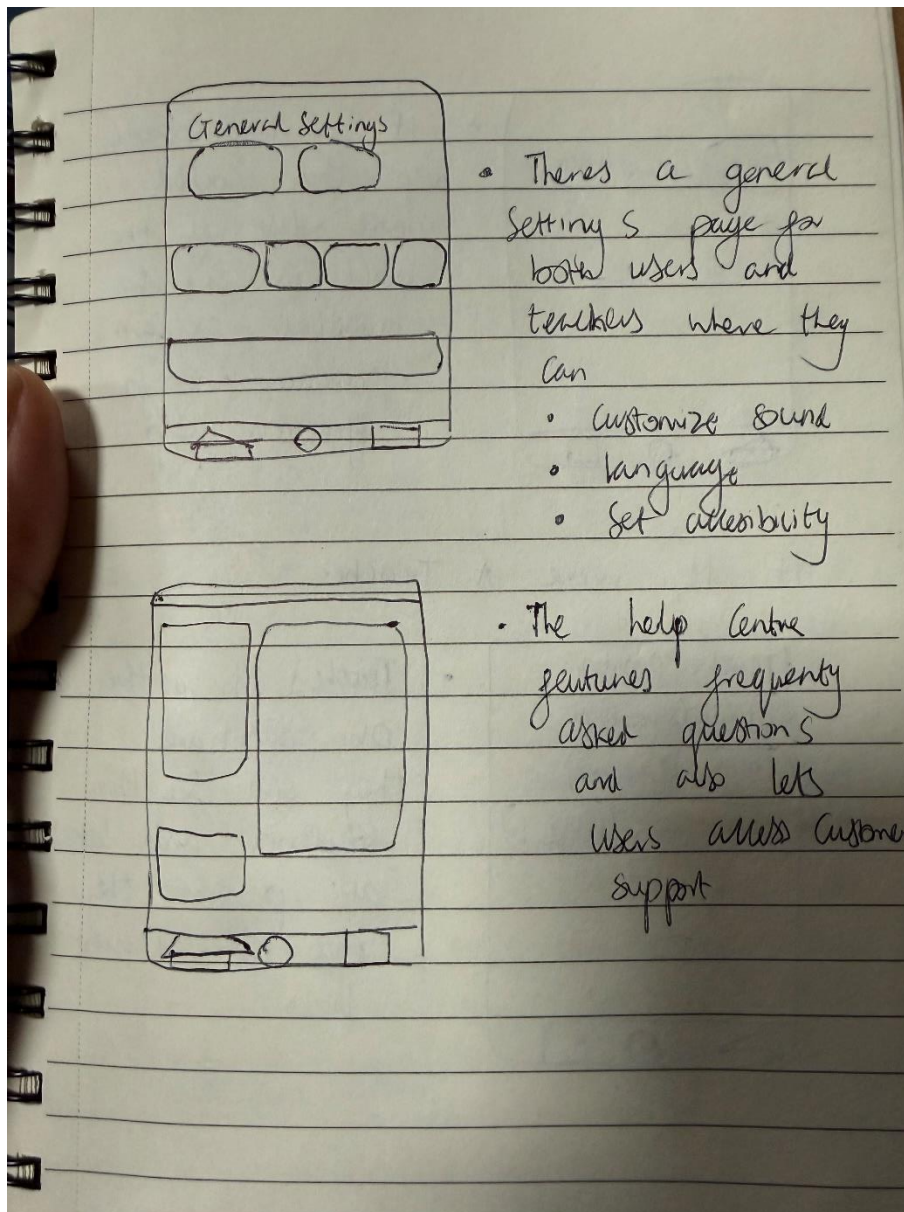 General Settings
• Theres a general
Settings page for
both users and
teachers where they
can
• customize sound
• language
• Set accesibility
• The help Centre
features frequenty
asked questions
and also lets
users access Custome
support